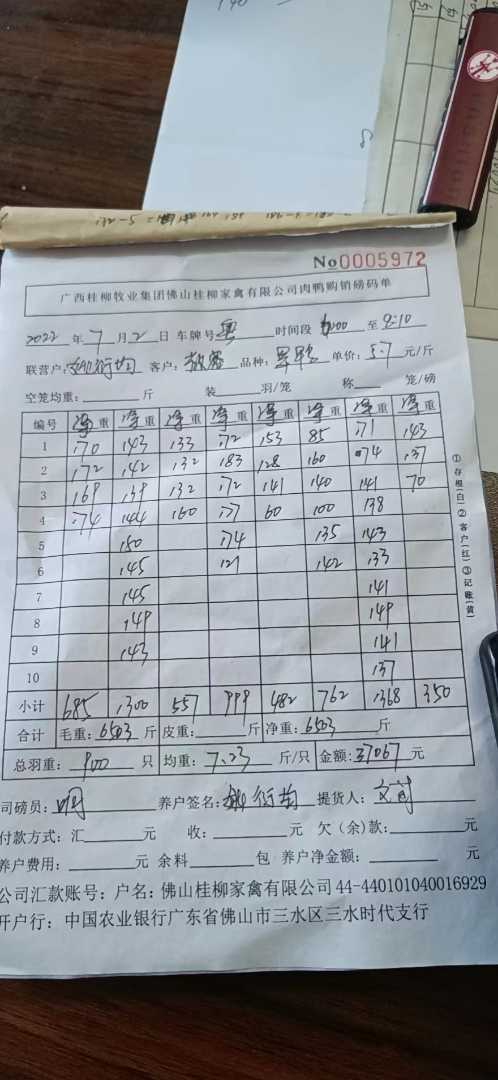 No0005972
广西桂柳牧业集团佛山桂柳家禽有限公司肉鸭购销磅码单
2022年7月2日 车牌号 粤 时间段 至 9:10
联营户: 客户: 品种: 单价: 5.7 元/斤
空笼均重: 斤 装 羽/笼 称 笼/磅
编号 净重 净重 净重 净重 净重 净重 净重 净重
1 170 143 133 172 153 85 171 143
2 172 142 132 183 128 160 174 137
3 169 139 132 172 141 140 141 70
4 174 144 160 177 60 100 138
5 150 174 135 143
6 145 121 142 133
7 145 141
8 149 149
9 143 141
10 137
小计 685 1300 557 999 482 762 1368 350
合计 毛重: 6503 斤 皮重: 斤 净重: 6503 斤
总羽重: 900 只 均重: 7.23 斤/只 金额: 37067 元
司磅员: 明 养户签名: 提货人:
付款方式: 汇 元 收: 元 欠(余)款: 元
养户费用: 元 余料 包 养户净金额: 元
公司汇款账号: 户名: 佛山桂柳家禽有限公司 44-440101040016929
开户行: 中国农业银行广东省佛山市三水区三水时代支行
①存根(白)②客户(红)③记账(黄)